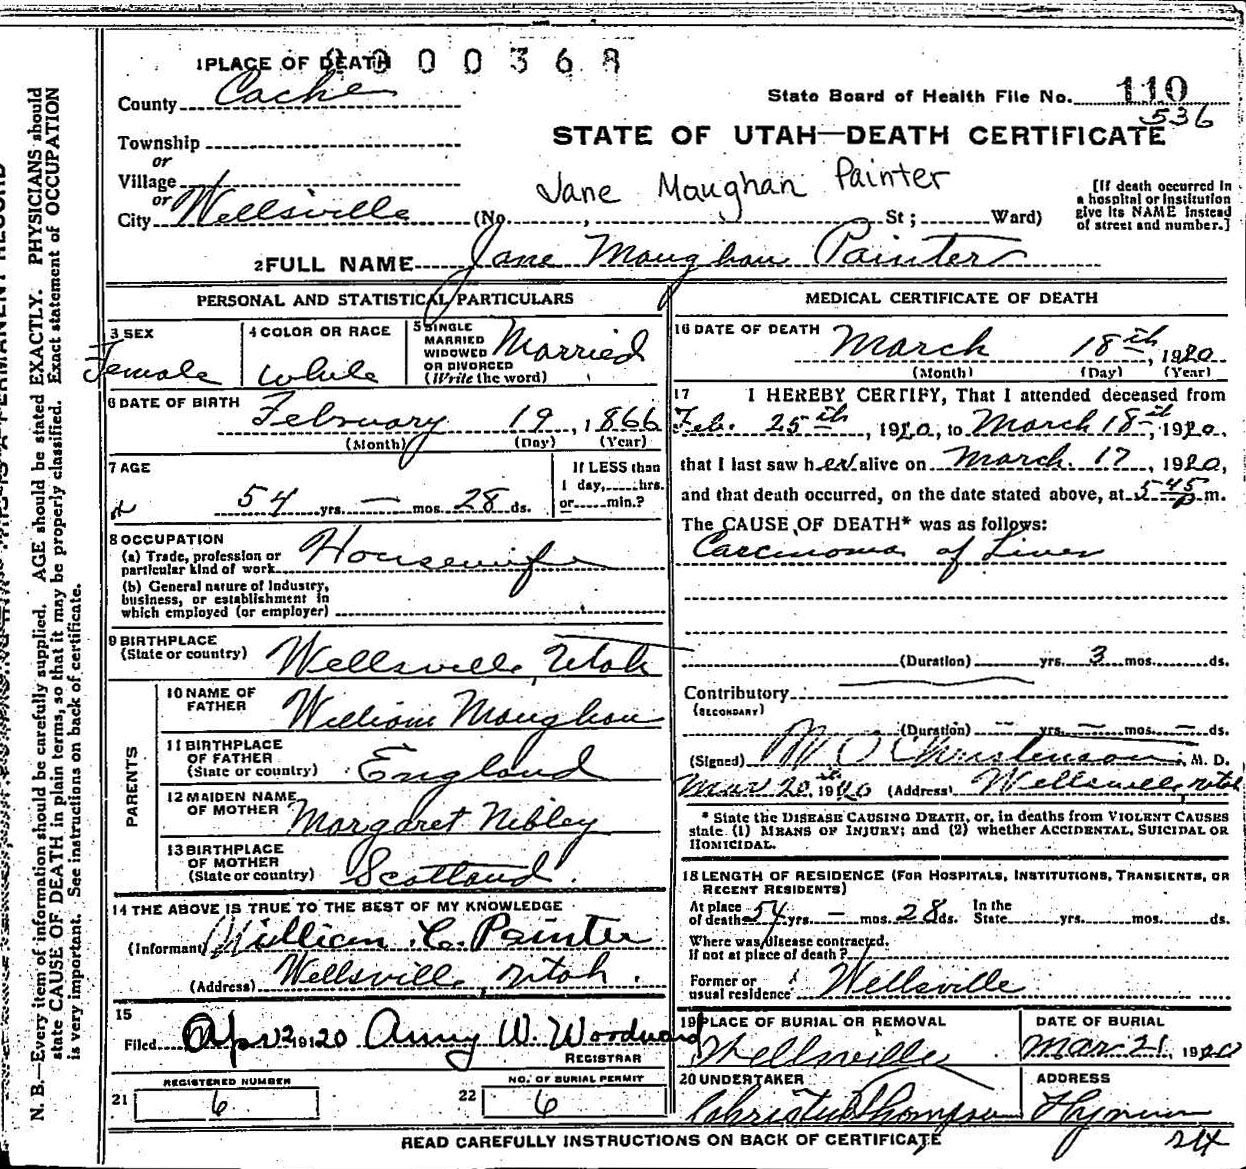 1 PLACE OF DEATH 0000368
County Cache
State Board of Health File No. 110
536
Township
or
Village
or
City Wellsville (No. , St; Ward)
STATE OF UTAH—DEATH CERTIFICATE
Jane Maughan Painter
[If death occurred in
a hospital or institution
give its NAME instead
of street and number.]
2 FULL NAME Jane Maughan Painter
PERSONAL AND STATISTICAL PARTICULARS
3 SEX
Female
4 COLOR OR RACE
White
5 SINGLE
MARRIED
WIDOWED
OR DIVORCED
(Write the word)
Married
6 DATE OF BIRTH
February 19, 1866
(Month) (Day) (Year)
7 AGE
54 yrs. — mos. 28 ds.
If LESS than
1 day, hrs.
or min.?
8 OCCUPATION
(a) Trade, profession or
particular kind of work Housewife
(b) General nature of Industry,
business, or establishment in
which employed (or employer)
9 BIRTHPLACE
(State or country) Wellsville, Utah
PARENTS
10 NAME OF
FATHER William Maughan
11 BIRTHPLACE
OF FATHER
(State or country) England
12 MAIDEN NAME
OF MOTHER Margaret Nibley
13 BIRTHPLACE
OF MOTHER
(State or country) Scotland.
14 THE ABOVE IS TRUE TO THE BEST OF MY KNOWLEDGE
(Informant) William C. Painter
(Address) Wellsville, Utah.
15
Filed Apr 2 19120 Amy W. Woodward
REGISTRAR
REGISTERED NUMBER
21 6
NO. OF BURIAL PERMIT
22 6
MEDICAL CERTIFICATE OF DEATH
16 DATE OF DEATH
March 18th, 1920
(Month) (Day) (Year)
17 I HEREBY CERTIFY, That I attended deceased from
Feb. 25th, 1920, to March 18th, 1920,
that I last saw her alive on March. 17, 1920,
and that death occurred, on the date stated above, at 5 45 p m.
The CAUSE OF DEATH* was as follows:
Carcinoma of Liver
(Duration) yrs. 3 mos. ds.
Contributory
(SECONDARY)
(Duration) — yrs. — mos. — ds.
(Signed) M C Christenson, M. D.
Mar 20th, 1920 (Address) Wellsville, Utah
* State the DISEASE CAUSING DEATH, or, in deaths from VIOLENT CAUSES
state (1) MEANS OF INJURY; and (2) whether ACCIDENTAL, SUICIDAL OR
HOMICIDAL.
18 LENGTH OF RESIDENCE (FOR HOSPITALS, INSTITUTIONS, TRANSIENTS, OR
RECENT RESIDENTS)
At place
of death 54 yrs. — mos. 28 ds. In the
State yrs. mos. ds.
Where was disease contracted.
If not at place of death?
Former or
usual residence Wellsville
19 PLACE OF BURIAL OR REMOVAL
Wellsville
DATE OF BURIAL
Mar 21, 1920
20 UNDERTAKER
Thompson
ADDRESS
Hyrum
READ CAREFULLY INSTRUCTIONS ON BACK OF CERTIFICATE
N. B.—Every item of information should be carefully supplied. AGE should be stated EXACTLY. PHYSICIANS should
state CAUSE OF DEATH in plain terms, so that it may be properly classified. Exact statement of OCCUPATION
is very important. See instructions on back of certificate.